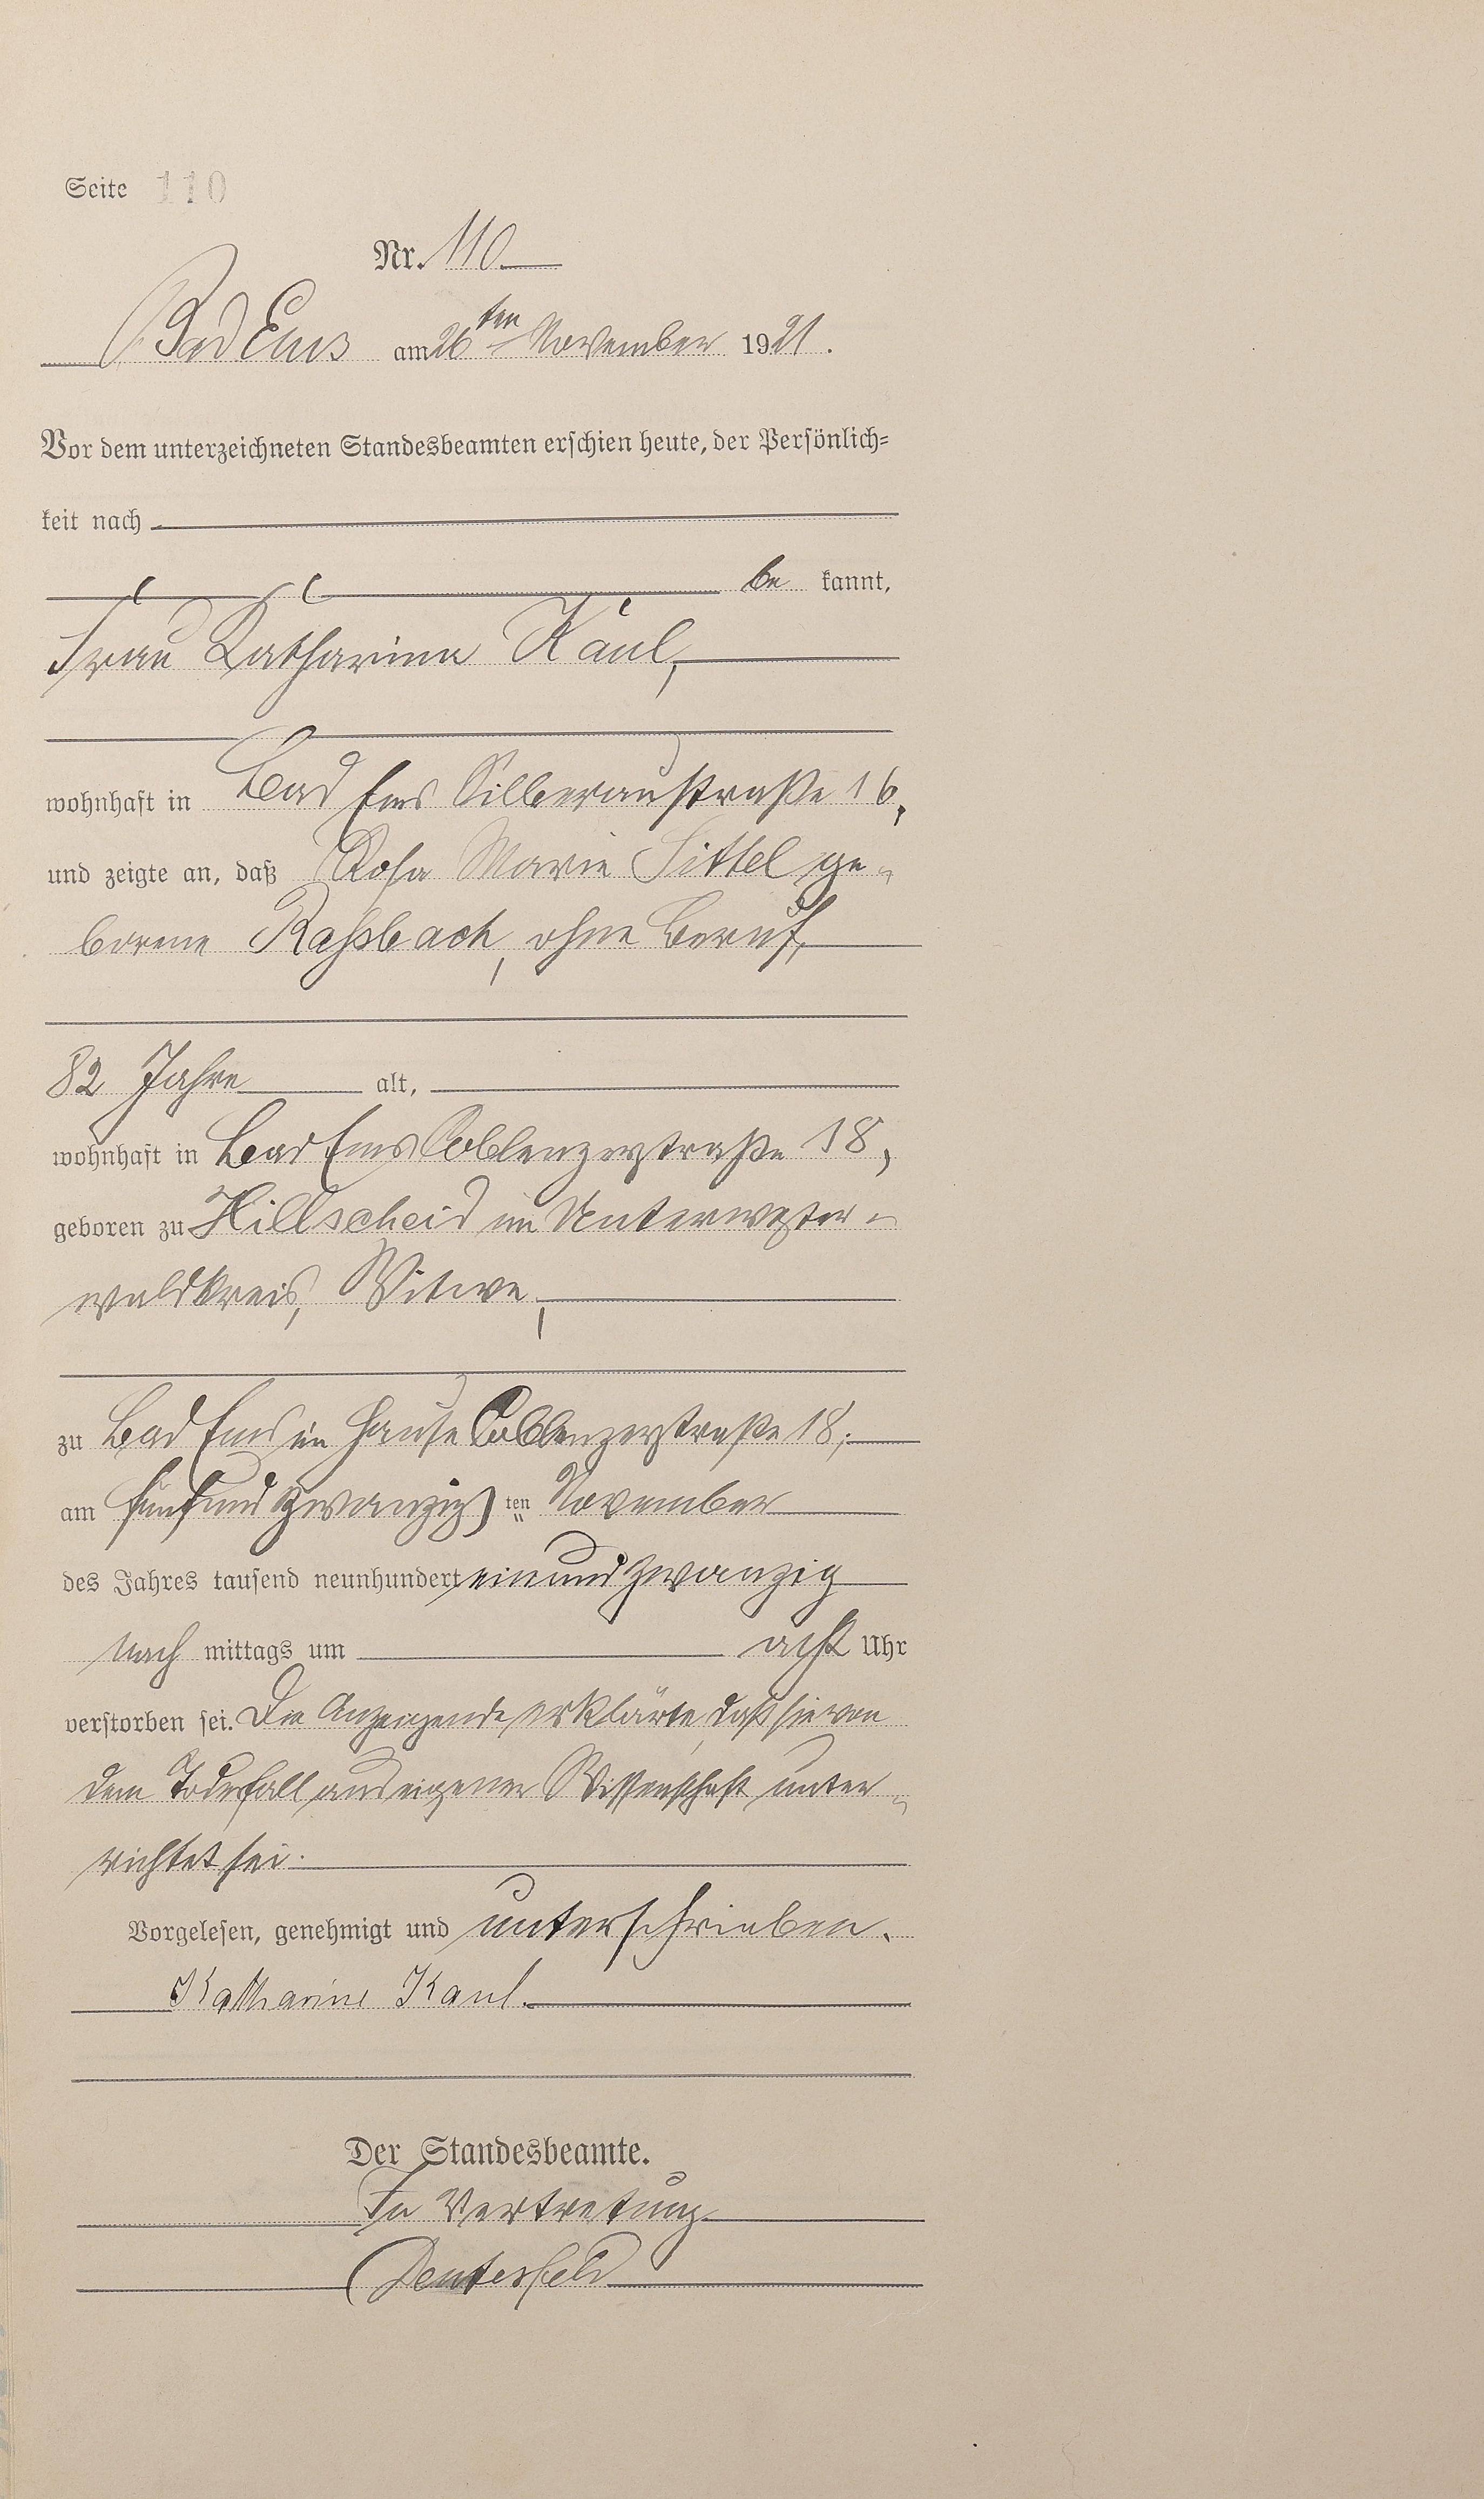 Seite 110
Nr. 110
Bad Ems am 26ten November 1921.
Vor dem unterzeichneten Standesbeamten erschien heute, der Persönlich-
keit nach
be kannt,
Frau Katharina Kaul,
wohnhaft in Bad Ems Silberaustraße 16,
und zeigte an, daß Rosa Marie Sittel ge-
borene Raßbach, ohne Beruf,
82 Jahre alt,
wohnhaft in Bad Ems Coblenzerstraße 18,
geboren zu Hillscheid im Unterwester-
waldkreis, Witwe,
zu Bad Ems im Hause Coblenzerstraße 18,
am fünfundzwanzigsten November
des Jahres tausend neunhundert einundzwanzig
nach mittags um acht Uhr
verstorben sei. Die Anzeigende erklärte, daß sie von
dem Todesfall aus eigener Wissenschaft unter-
richtet sei.
Vorgelesen, genehmigt und unterschrieben.
Katharine Kaul.
Der Standesbeamte.
In Vertretung